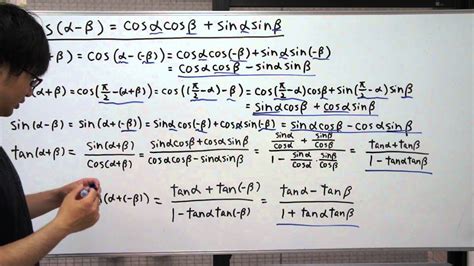 s(α-β) = cosαcosβ + sinαsinβ
+β) = cos(α-(-β)) = cosαcos(-β) + sinαsin(-β)
= cosαcosβ - sinαsinβ
(α+β) = cos(π/2-(α+β)) = cos((π/2-α)-β) = cos(π/2-α)cosβ + sin(π/2-α)sinβ
= sinαcosβ + cosαsinβ
sin(α-β) = sin(α+(-β)) = sinαcos(-β) + cosαsin(-β) = sinαcosβ - cosαsinβ
tan(α+β) = sin(α+β)/cos(α+β) = (sinαcosβ + cosαsinβ)/(cosαcosβ - sinαsinβ) = (sinα/cosα + sinβ/cosβ)/(1 - sinα/cosα sinβ/cosβ) = (tanα + tanβ)/(1 - tanαtanβ)
(α+(-β)) = (tanα + tan(-β))/(1 - tanαtan(-β)) = (tanα - tanβ)/(1 + tanαtanβ)